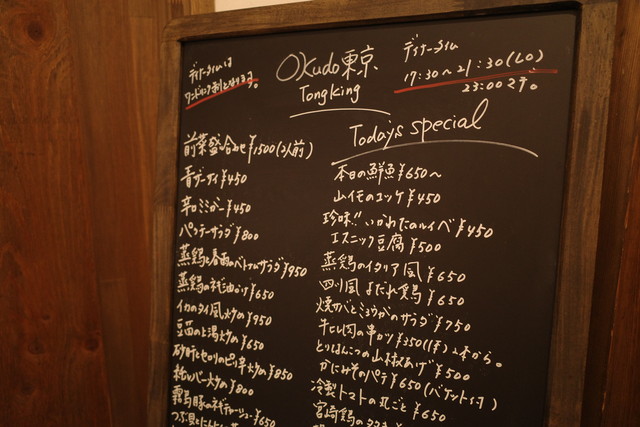 ディナータイムは
ワンドリンク制となります。
Okudo東京
TongKing
ディナータイム
17:30～21:30(LO)
23:00マデ。
前菜盛合わせ ¥1500(2人前)
青ゲーティ ¥450
辛口ミミガー ¥450
パクチーサラダ ¥800
蒸鶏と春雨のベトナムサラダ ¥950
蒸鶏のネギ油かけ ¥650
イカのタイ風炒め ¥950
豆苗の上湯炒め ¥650
砂肝とセロリのピリ辛炒め ¥850
炒め ¥800
霧島豚のネギチャーシュー ¥650
Today's special
本日の鮮魚 ¥650～
山イモのユッケ ¥450
珍味!! いかわたのルイベ ¥450
エスニック豆腐 ¥500
蒸鶏のイタリア風 ¥650
四川風 よだれ鶏 ¥650
焼ナバとミョウガのサラダ ¥750
牛ヒレ肉の串カツ ¥350(1本) 2本から。
とりはんぺんの山椒あげ ¥500
かにみそのパテ ¥650(バゲット付)
冷製トマトの丸ごと ¥650
宮崎鶏のタタキ